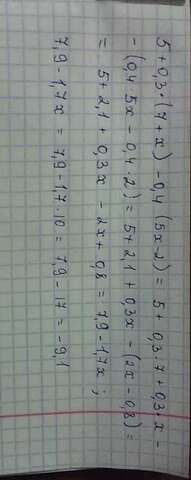 5+0,3·(7+x)-0,4(5x-2)= 5+ 0,3·7+0,3·x-
-(0,4·5x-0,4·2)= 5+2,1+0,3x-(2x-0,8)=
= 5+2,1+0,3x-2x+0,8= 7,9-1,7x;
7,9-1,7x = 7,9-1,7·10= 7,9-17= -9,1